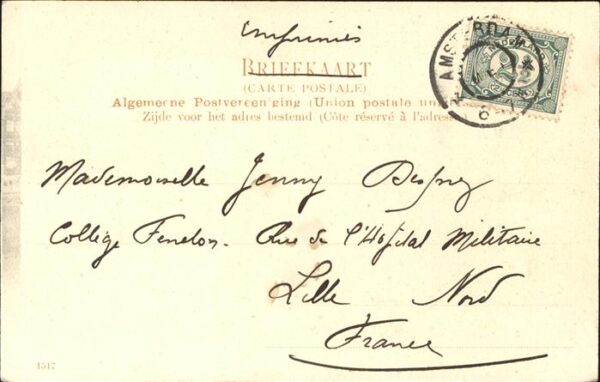 Imprimés
BRIEFKAART
(CARTE POSTALE)
Algemeene Postvereeniging (Union postale un
Zijde voor het adres bestemd (Côte réservé à l'adress
AMSTERDAM
Mademoiselle Jenny
Collège Fenelon. Rue de l'Hôpital Militaire
Lille Nord
France
1517